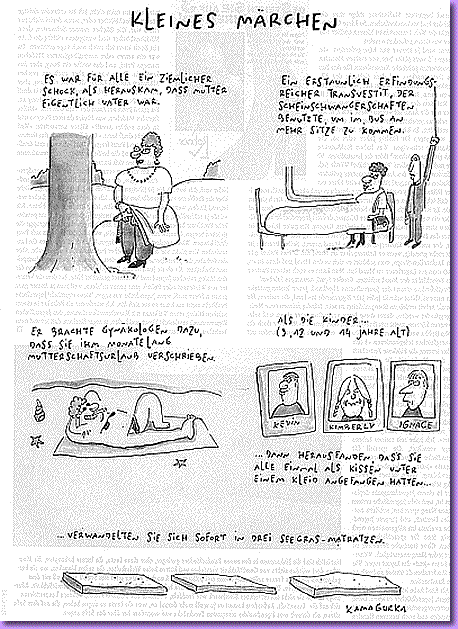 KLEINES MÄRCHEN
ES WAR FÜR ALLE EIN ZIEMLICHER
SCHOCK, ALS HERAUSKAM, DASS MUTTER
EIGENTLICH VATER WAR.
EIN ERSTAUNLICH ERFINDUNGS-
REICHER TRANSVESTIT, DER
SCHEINSCHWANGERSCHAFTEN
BENUTZTE, UM IM BUS AN
MEHR SITZE ZU KOMMEN.
ER BRACHTE GYNÄKOLOGEN DAZU,
DASS SIE IHM MONATELANG
MUTTERSCHAFTSURLAUB VERSCHRIEBEN.
ALS DIE KINDER...
(9, 12 UND 14 JAHRE ALT)
KEVIN
KIMBERLY
IGNACE
...DANN HERAUSFANDEN, DASS SIE
ALLE EINMAL ALS KISSEN UNTER
EINEM KLEID ANGEFANGEN HATTEN...
...VERWANDELTEN SIE SICH SOFORT IN DREI SEEGRAS-MATRATZEN.
KAMAGURKA